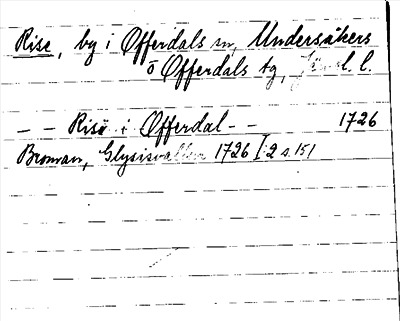 Rise, by i Offerdals sn, Undersåkers
o Offerdals tg, Jämtl. l.
– – Risö i Offerdal – – 1726
Broman, Glysisvallen 1726 I:2 s. 151